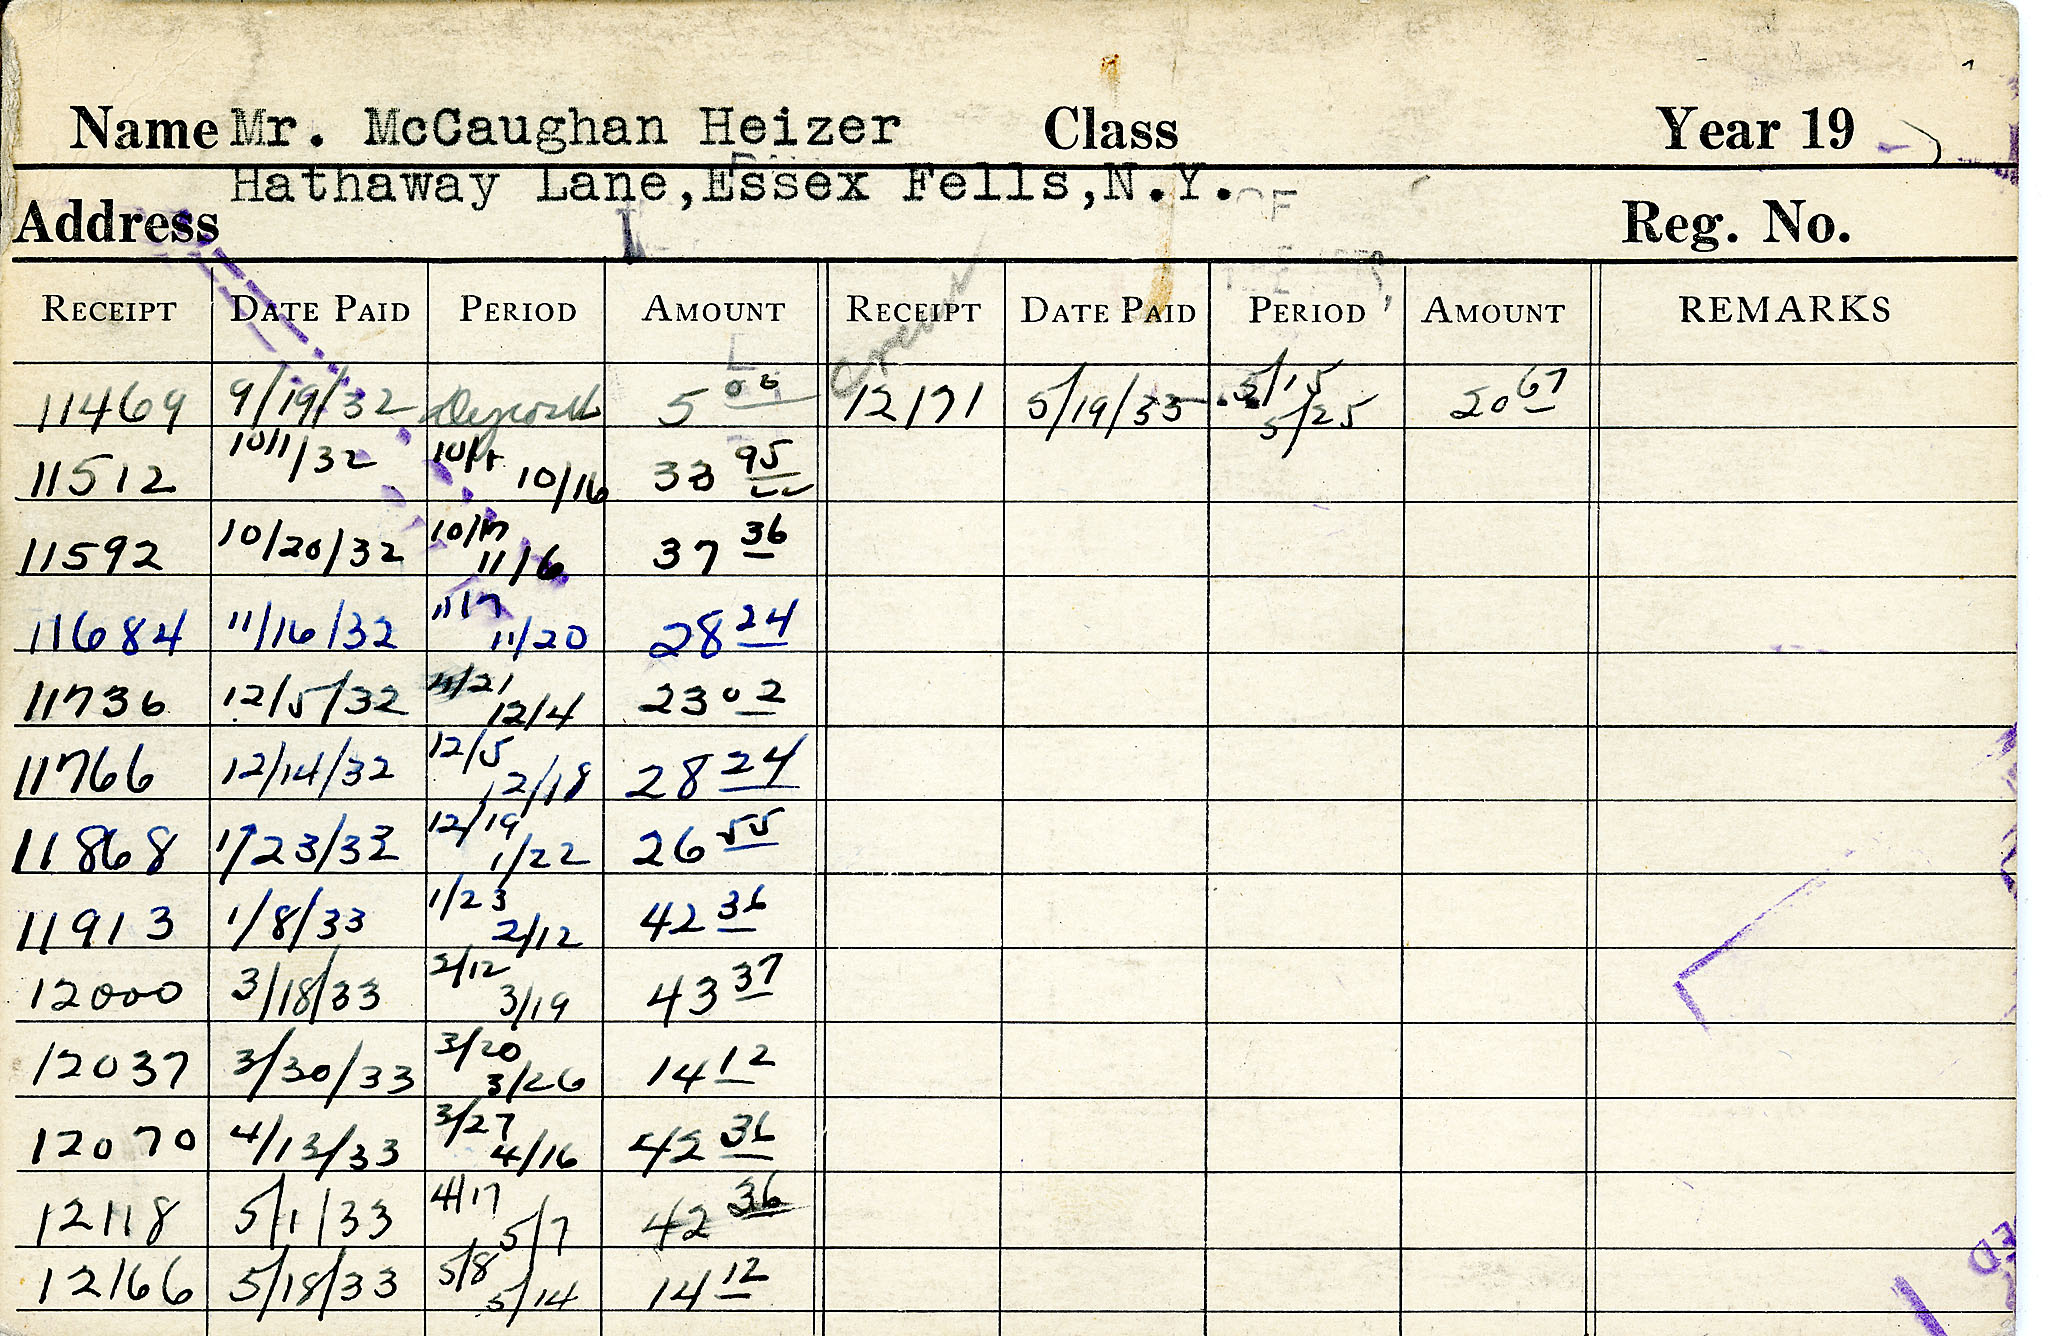 Name Mr. McCaughan Heizer Class Year 19
Hathaway Lane,Essex Fells,N.Y.
Address Reg. No.
RECEIPT DATE PAID PERIOD AMOUNT RECEIPT DATE PAID PERIOD AMOUNT REMARKS
11469 9/19/32 Deposit 5 00 12171 5/19/33 5/15 5/25 20 67
11512 10/1/32 10/1 10/16 33 95
11592 10/20/32 10/17 11/6 37 36
11684 11/16/32 11/7 11/20 28 24
11736 12/5/32 11/21 12/4 23 02
11766 12/14/32 12/5 12/18 28 24
11868 1/23/33 12/19 1/22 26 55
11913 1/8/33 1/23 2/12 42 36
12000 3/18/33 2/12 3/19 43 37
12037 3/30/33 3/20 3/26 14 12
12070 4/13/33 3/27 4/16 42 36
12118 5/1/33 4/17 5/7 42 36
12166 5/18/33 5/8 5/14 14 12